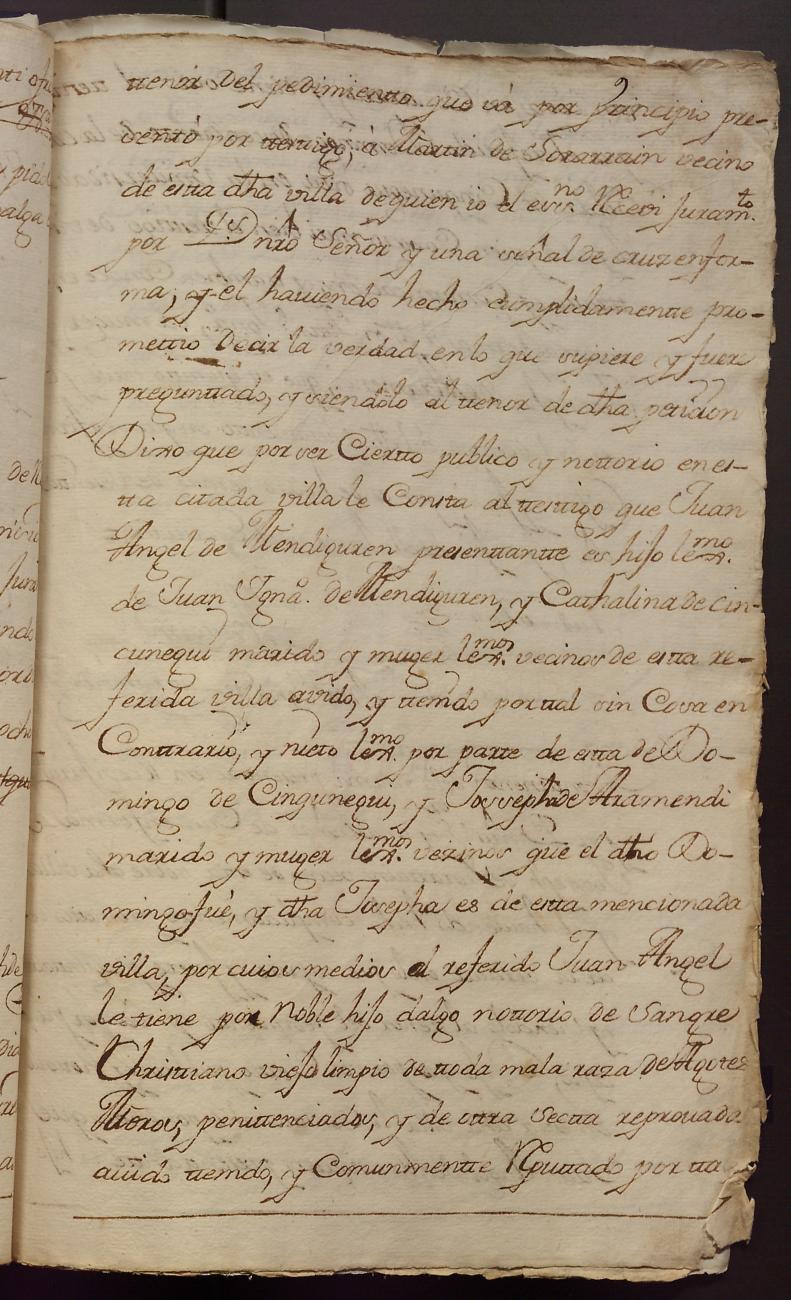 tenor del pedimiento que vá por principio pre-
sentó por testigo, á Martin de Sorarrain vecino
de esta dha villa de quien io el essno Receví juramto
por Dios Nro Señor y una señal de cruz en for-
ma, y el haviendo hecho cumplidamente pro-
mettio decir la verdad en lo que supiere y fuere
preguntado, y siendolo al tenor de dha peticion
Dixo que por ser Ciertto publico y nottorio en es-
ta citada villa le Consta al testigo que Juan
Angel de Mendiguren presentantte es hijo lexmo.
de Juan Igna. de Mendiguren, y Cathalina de Cin-
cunegui marido y muger lexmos. vecinos de esta re-
ferida villa avido, y tenido por tal sin Cosa en
Conttrario, y nieto lexmo. por parte de esta de Do-
mingo de Cingunegui, y Josepha de Aramendi
marido y muger lexmos. vezinos que el dho Do-
mingo fué, y dha Josepha es de esta mencionada
villa, por cuios medios al referido Juan Angel
le tiene por Noble hijo dalgo nottorio de Sangre
Christiano viejo limpio de toda mala raza de Agotes
Moros, penitenciados, y de otra Secta reprouada
auido tenido, y Comunmentte Reputtado por ta